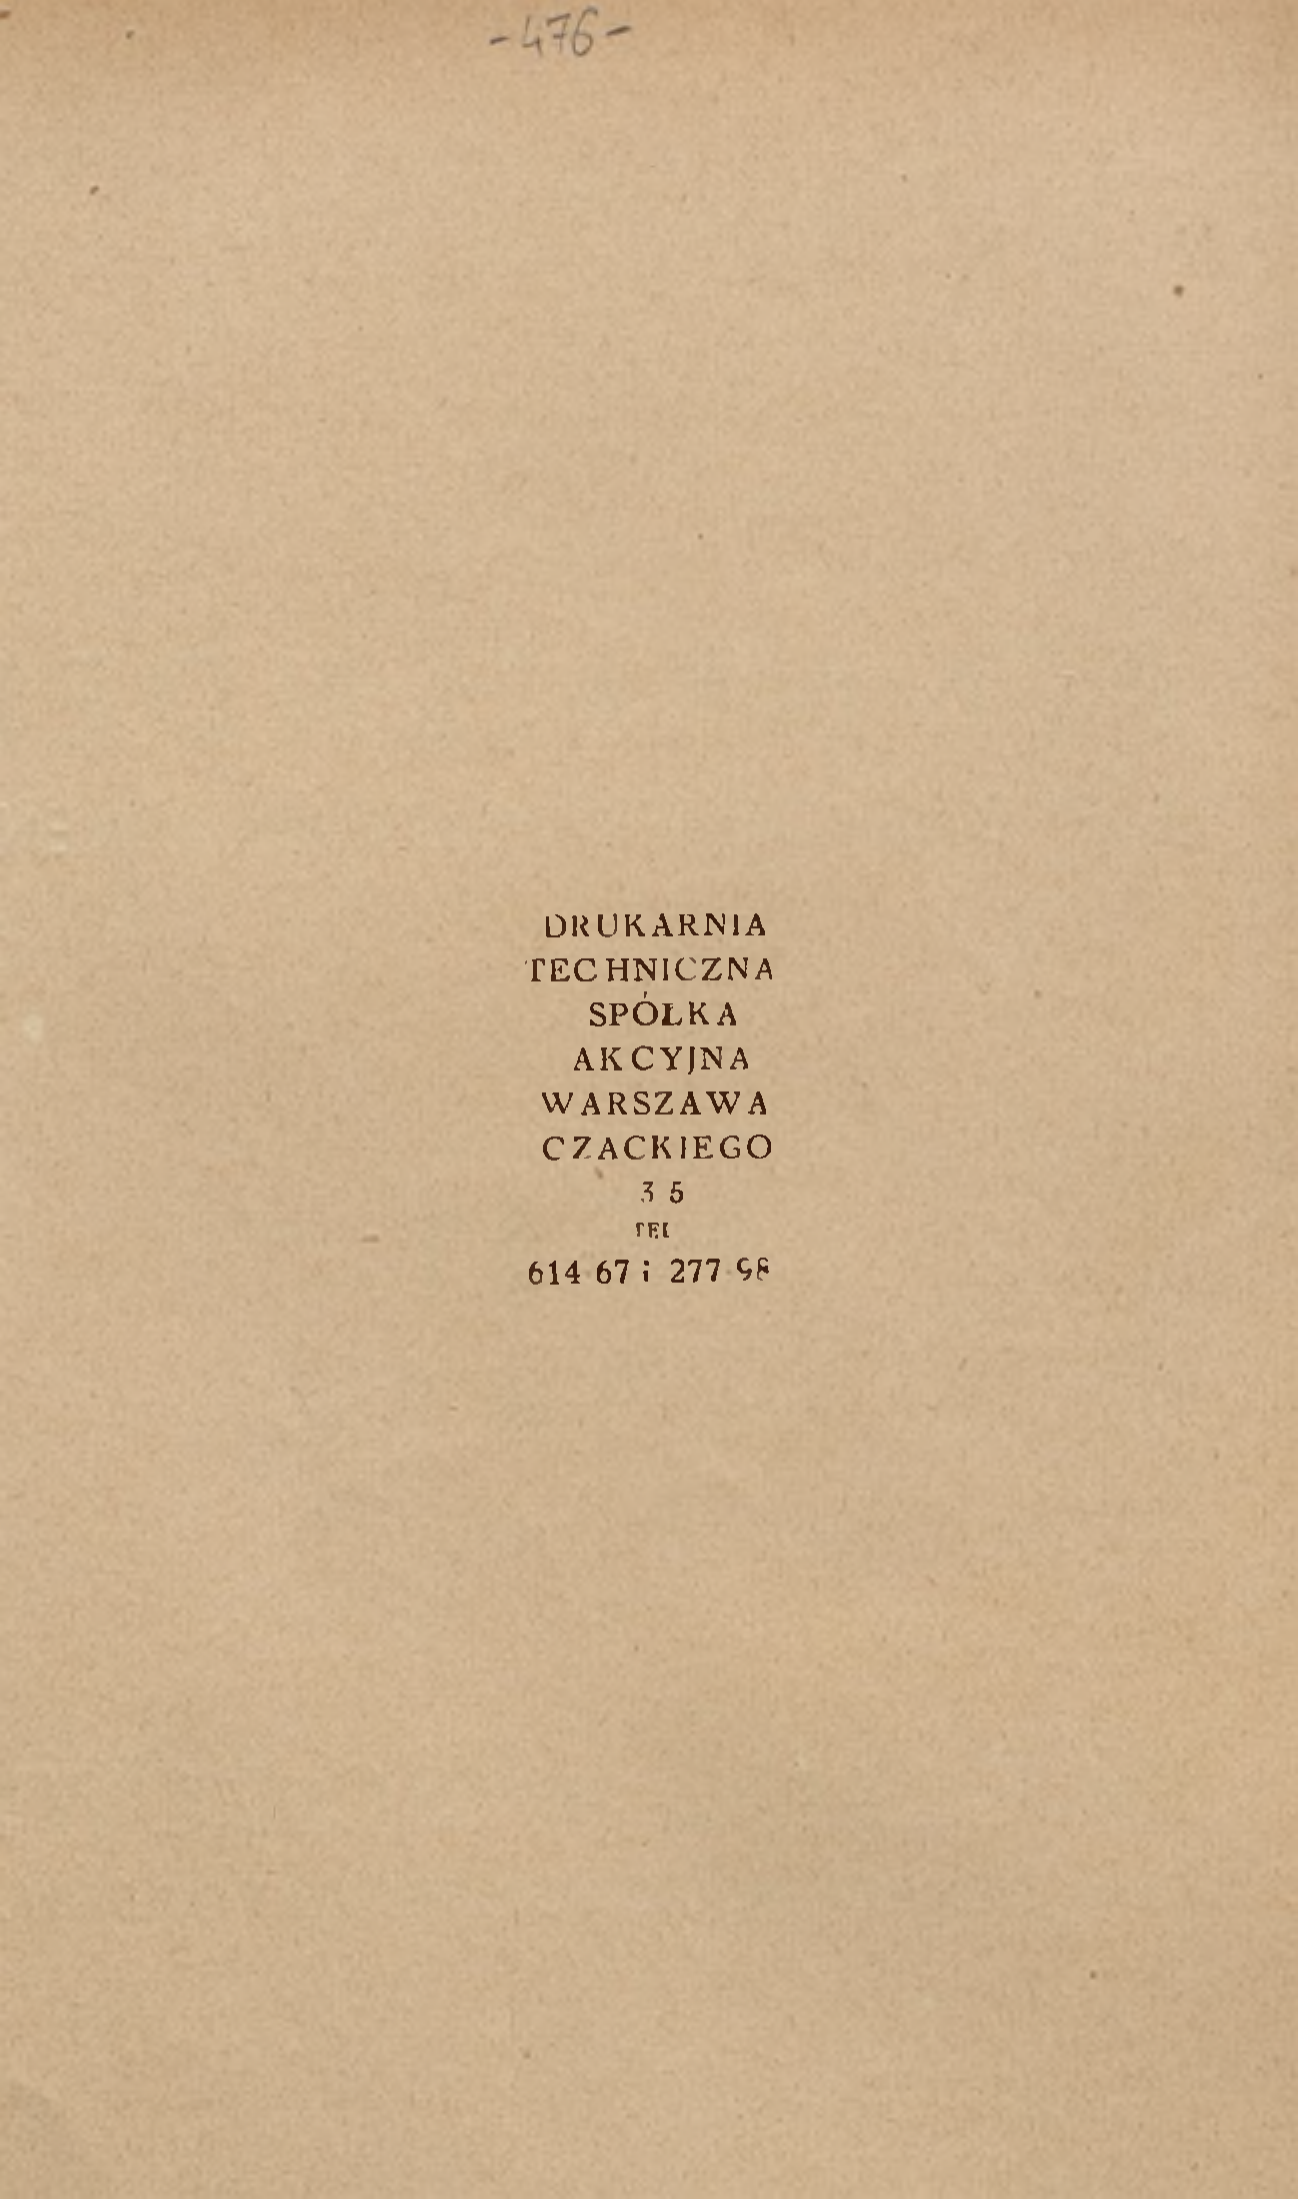 -476-
DRUKARNIA
TECHNICZNA
SPÓŁKA
AKCYJNA
WARSZAWA
CZACKIEGO
35
TEL
614 67 i 277 98